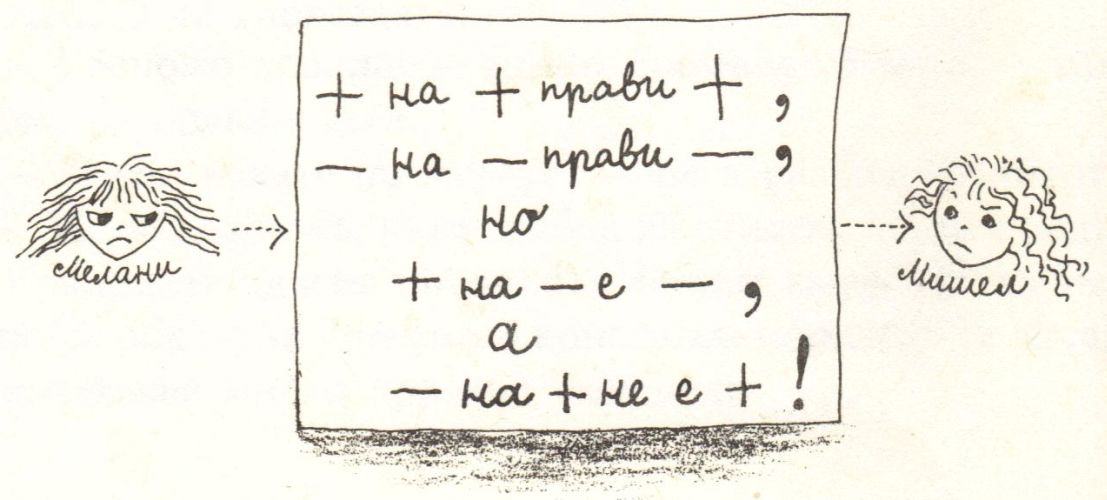 + на + прави +,
— на — прави —,
но
Мелани
+ на — е —,
Мишел
а
— на + не е + !